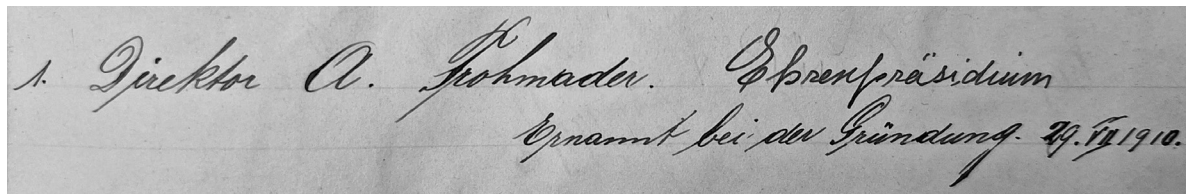 1. Direktor A. Frohmader. Ehrenpräsidium
Ernannt bei der Gründung. 29. VII 1910.